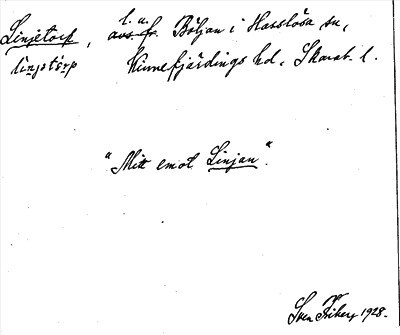 l. u.
Linjetorp, avs. fr. Böljan i Hasslösa sn,
linjetårp Kinnefjärdings hd. Skarab. l.
"Mitt emot Linjan".
Sven Friberg 1928.